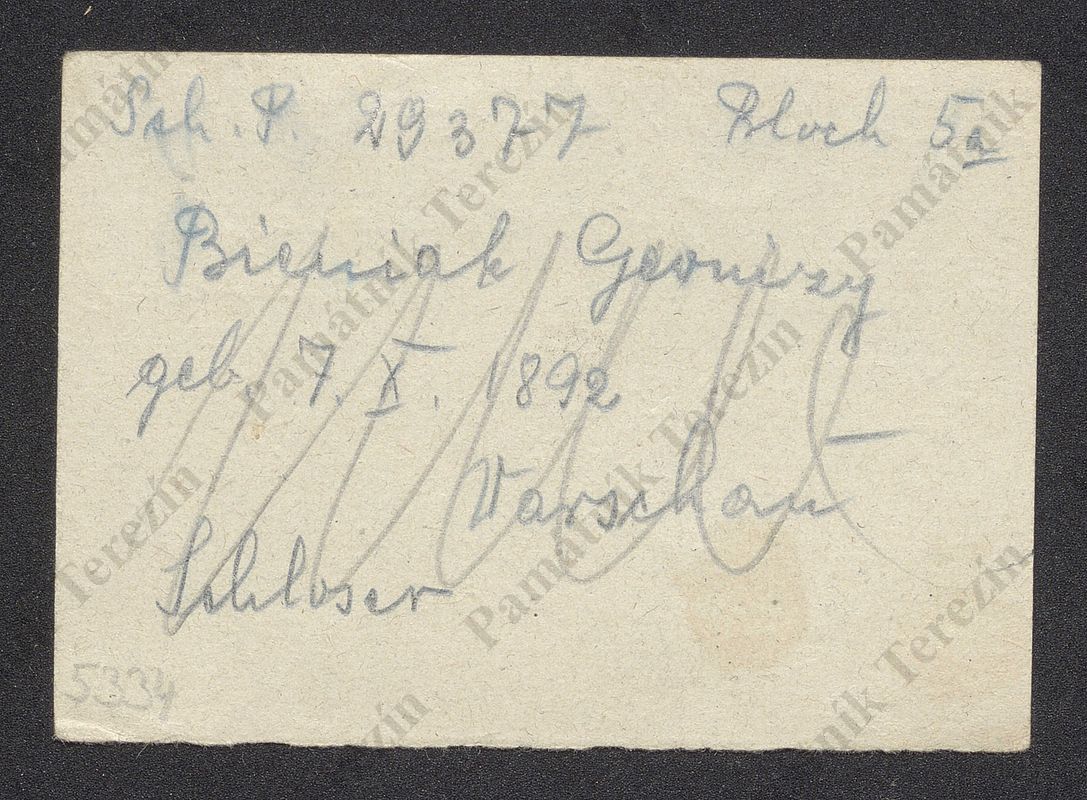 Sch. P. 29377 Block 5a
Bieniak Gerwizy
geb. 7. X. 1892
Varschau
Schloser
5334
Památník Terezín